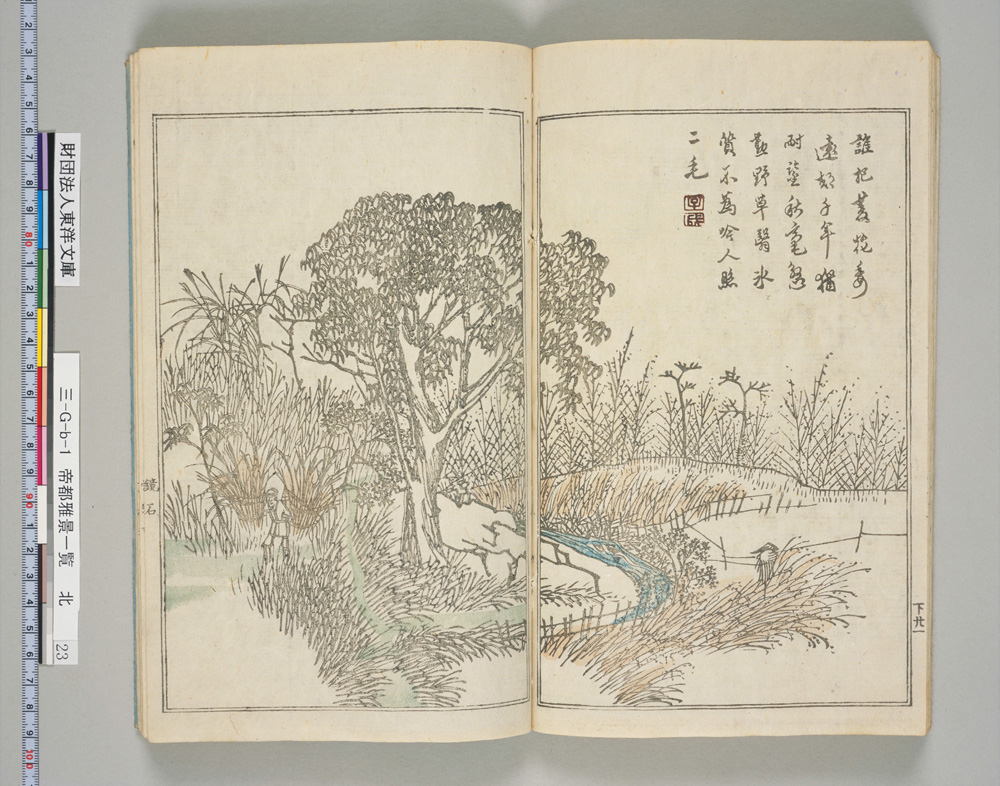 誰把菱花委
遠郊千年猶
耐鑒秋毫慇
懃野草翳氷
質不為吟人照
二毛
下廿一
鏡石
財団法人東洋文庫
三-G-b-1 帝都雅景一覧 北 23